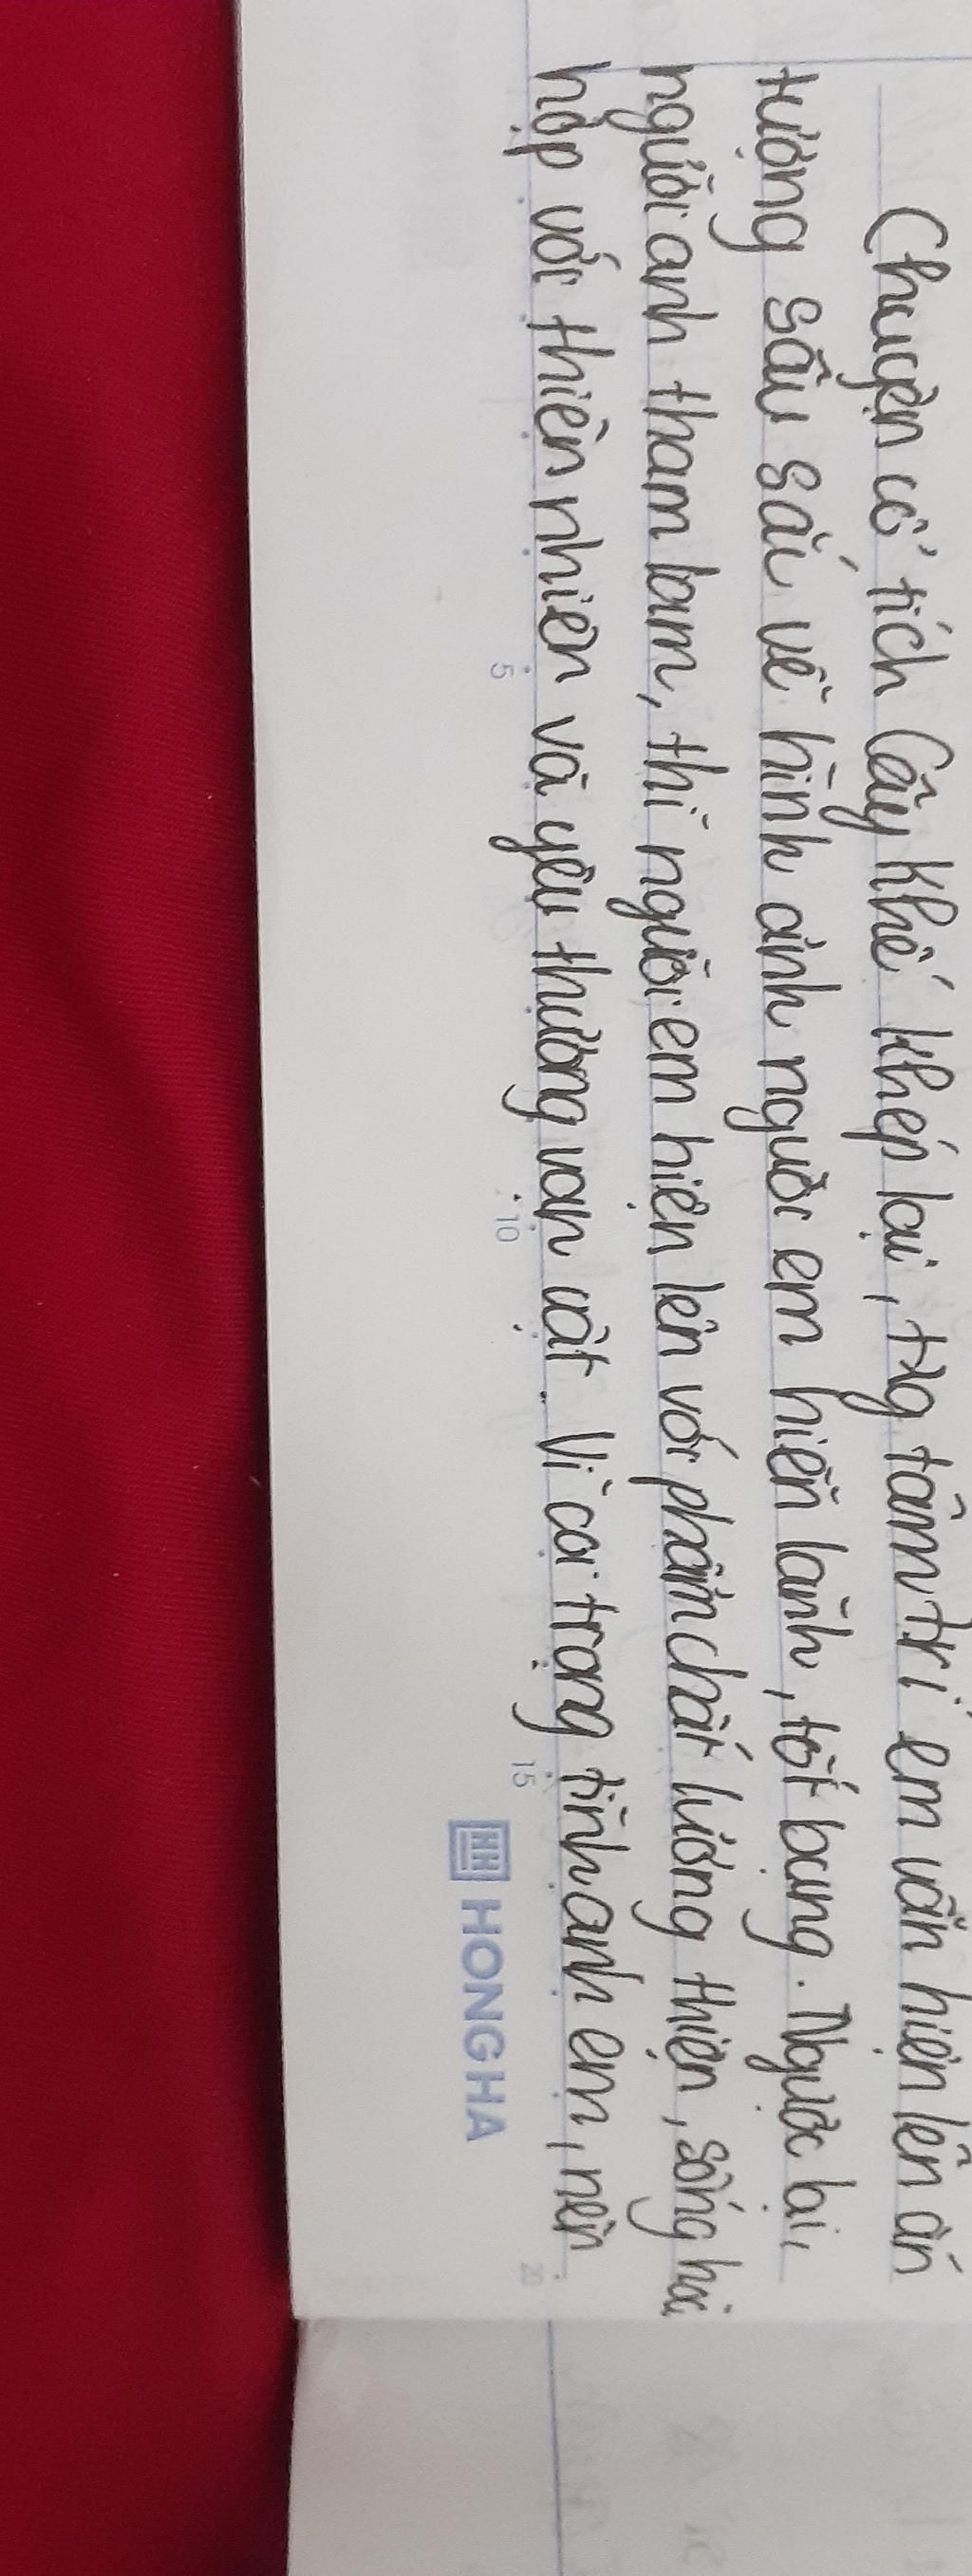 Chuyện cổ tích Cây khế khép lại, trg tâm trí em vẫn hiện lên ấn
tượng sâu sắc về hình ảnh người em hiền lành, tốt bụng. Ngược lại,
người anh tham lam, thì người em hiện lên với phẩm chất lương thiện, sống hòa
hợp với thiên nhiên và yêu thương vạn vật. Vì coi trọng tình anh em, nên
5
10
15
20
HH HONG HA